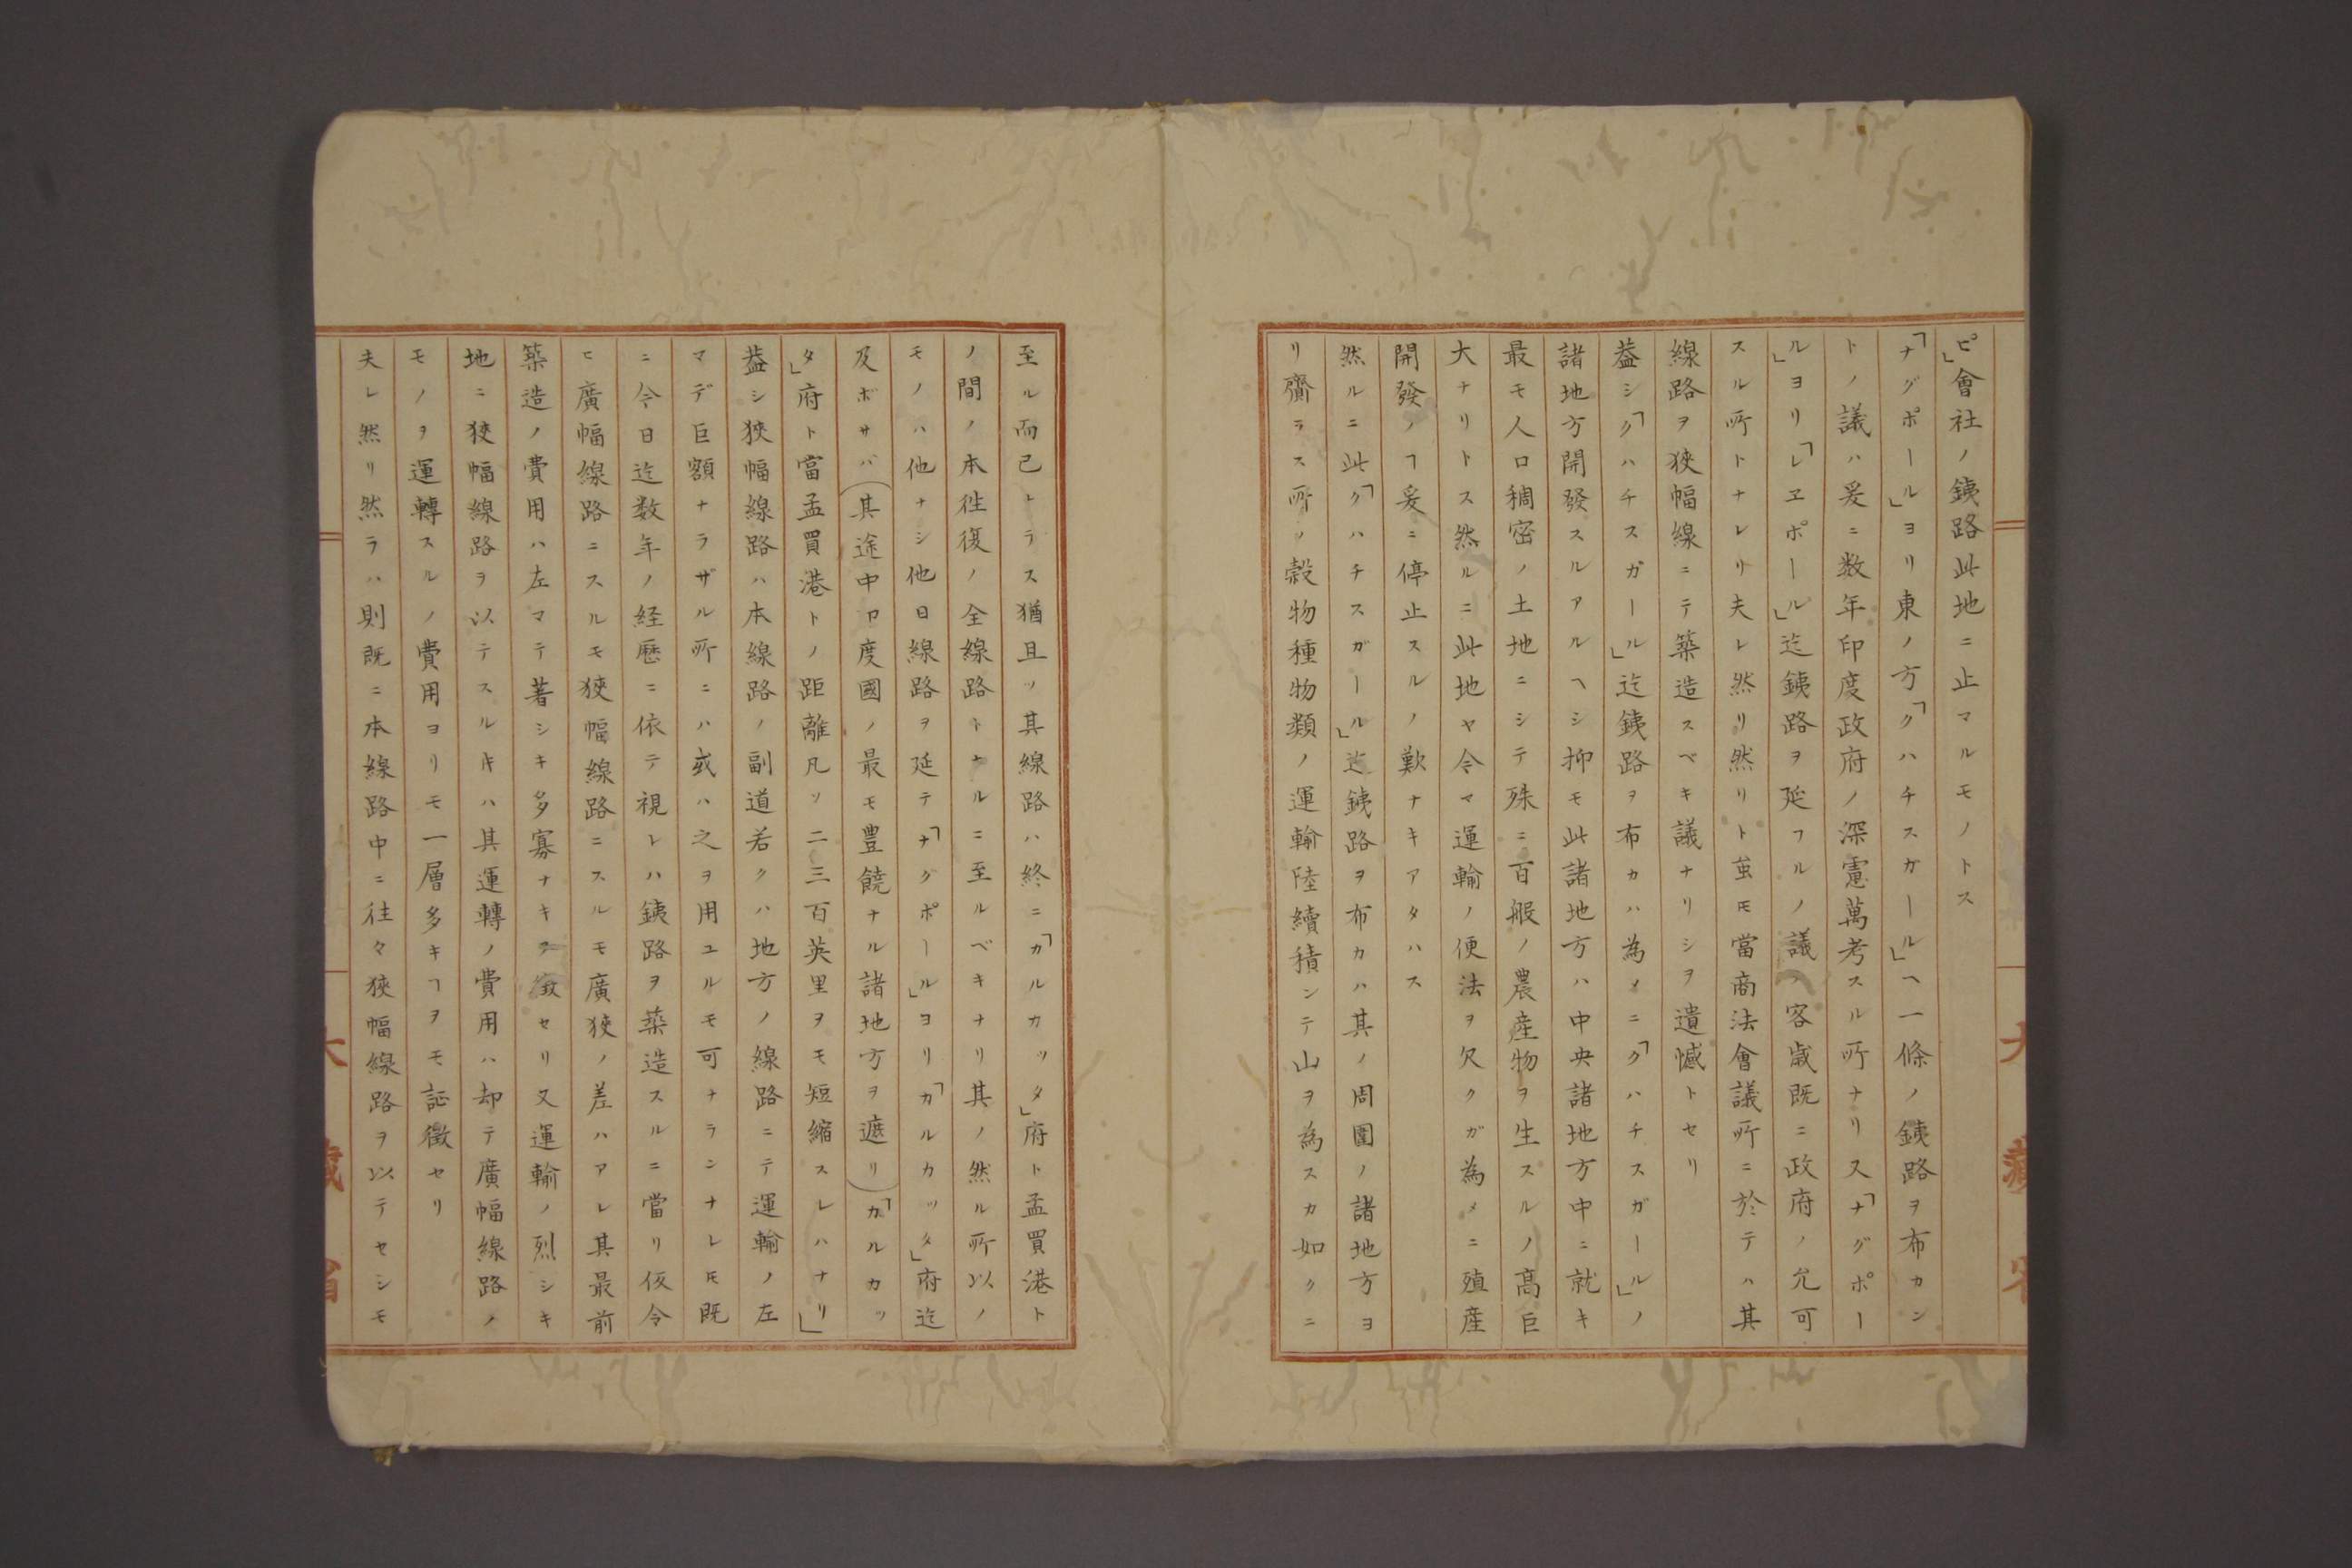 ピ」會社ノ銕路此地ニ止マルモノトス
「ナグポール」ヨリ東ノ方「クハチスガール」ヘ一條ノ銕路ヲ布カン
トノ議ハ爰ニ数年印度政府ノ深慮萬考スル所ナリス「ナグポー
ル」ヨリ「レヱポール」迄銕路ヲ延フルノ議ハ客歳既ニ政府ノ允可
スル所トナレリ夫レ然リ然リト茧𪜈當商法會議所ニ於テハ其
線路ヲ狹幅線ニテ築造スベキ議ナリシヲ遺憾トセリ
葢シ「クハチスガール」迄銕路ヲ布カハ為メニ「クハチスガール」ノ
諸地方開發スルアルヘシ抑モ此諸地方ハ中央諸地方中ニ就キ
最モ人口稠密ノ土地ニシテ殊ニ百般ノ農産物ヲ生スルノ髙巨
大ナリトス然ルニ此地ヤ今マ運輸ノ便法ヲ欠クガ為メニ殖産
開發ノヿ爰ニ停止スルノ歎ナキアタハス
然ルニ此「クハチスガール」迄銕路ヲ布カハ其ノ周圍ノ諸地方ヨ
リ齎ラス所ノ穀物種物類ノ運輸陸續積ンテ山ヲ為スカ如クニ
至ル而己トラス猶且ツ其線路ハ終ニ「カルカッタ」府ト孟買港ト
ノ間ノ本徃復ノ全線路トナルニ至ルベキナリ其ノ然ル所以ノ
モノハ他ナシ他日線路ヲ延テ「ナグポール」ヨリ「カルカッタ」府迄
及ボサバ(其途中印度國ノ最モ豊饒ナル諸地方ヲ遮リ)「カルカッ
タ」府ト當孟買港トノ距離凡ソ二三百英里ヲモ短縮スレハナリ」
葢シ狹幅線路ハ本線路ノ副道若クハ地方ノ線路ニテ運輸ノ左
マデ巨額ナラザル所ニハ或ハ之ヲ用ユルモ可ナランナレ𪜈既
ニ今日迄数年ノ経歴ニ依テ視レハ銕路ヲ築造スルニ當リ仮令
ヒ廣幅線路ニスルモ狹幅線路ニスルモ廣狹ノ差ハアレ其最前
築造ノ費用ハ左マテ著シキ多寡ナキヲ徴セリ又運輸ノ烈シキ
地ニ狹幅線路ヲ以テスルキハ其運轉ノ費用ハ却テ廣幅線路ノ
モノヲ運轉スルノ費用ヨリモ一層多キヿヲモ証徴セリ
夫レ然リ然ラハ則既ニ本線路中ニ往々狹幅線路ヲ以テセシモ